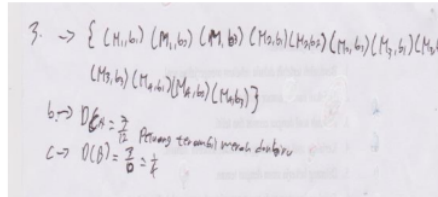 3. → { (M₁,b₁) (M₁,b₂) (M,b3) (M2,b1)(M2,b2)(M2,b1)(M3,b1)(M2,b
(M3,b3)(M4,b1)(M4,b2)(M4,b3)}
b. → D = 7/12 Peluang terambil merah dan biru
C → D(B) = 3/ = 1/4